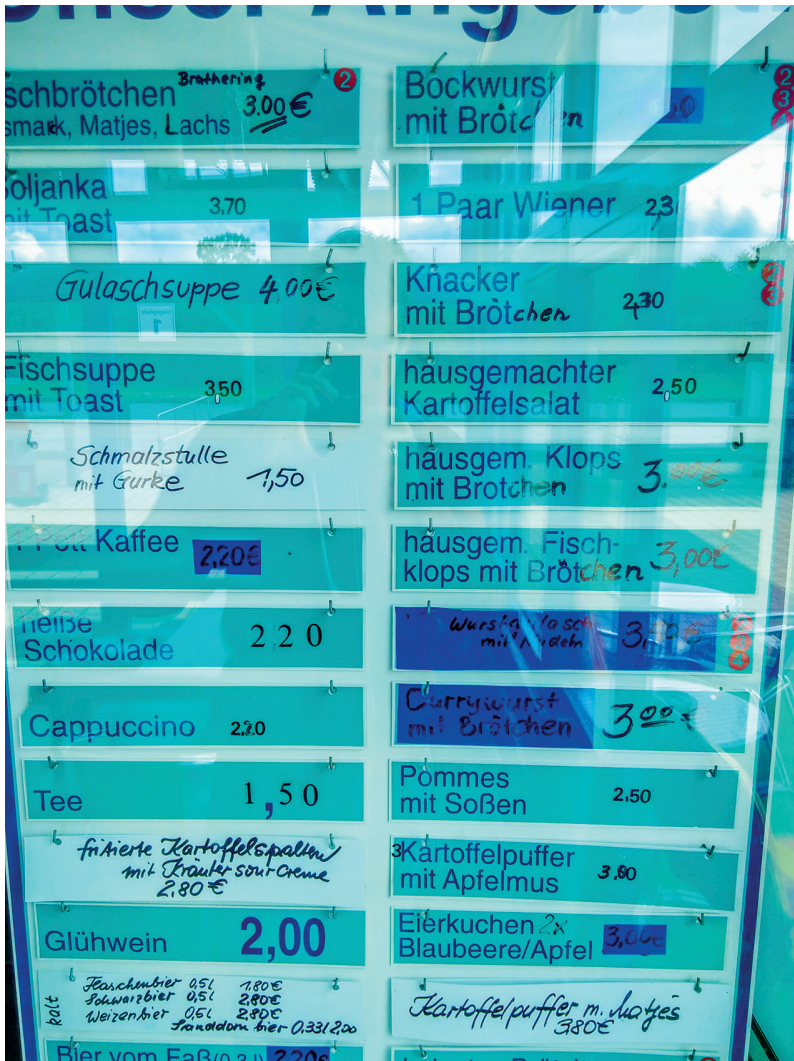 schbrötchen Brathering 3.00 € 2
smark, Matjes, Lachs
oljanka
mit Toast 3,70
Gulaschsuppe 4,00€
Fischsuppe
mit Toast 3,50
Schmalzstulle
mit Gurke 1,50
1 Pott Kaffee 2,20€
heiße
Schokolade 2 2 0
Cappuccino 2,20
Tee 1,50
fritierte Kartoffelspalten
mit Kräuter sour Creme
2,80 €
Glühwein 2,00
kalt
Flaschenbier 0,5l 1.80€
Schwarzbier 0,5l 2,80€
Weizenbier 0,5l 2,80€
Sanddorn bier 0.33l 2,00
Bier vom Faß 2,20€
Bockwurst
mit Brötchen
2
3
1 Paar Wiener 2,3
Knacker
mit Brötchen 2,30
hausgemachter
Kartoffelsalat 2,50
hausgem. Klops
mit Brotchen 3.00€
hausgem. Fisch-
klops mit Brötchen 3,00€
Wurstgulasch
mit Nudeln
Currywurst
mit Brötchen 3 00 €
Pommes
mit Soßen 2.50
3 Kartoffelpuffer
mit Apfelmus 3,00
Eierkuchen 2x
Blaubeere/Apfel 3,00€
Kartoffelpuffer m. Matjes
3,80€